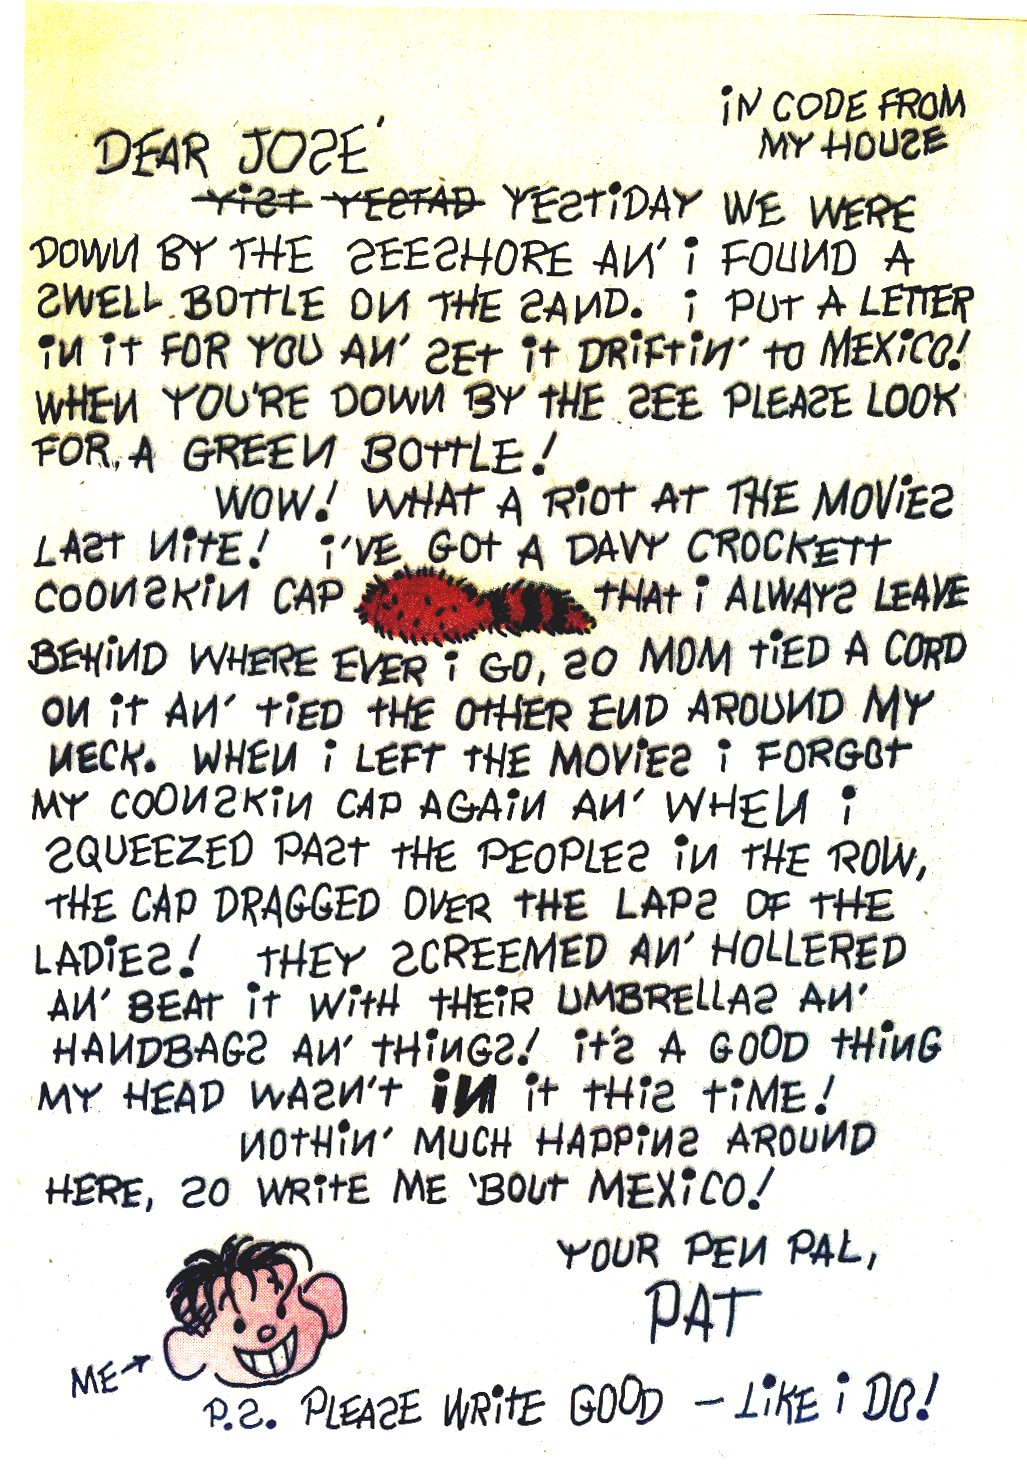 IN CODE FROM
MY HOUSE
DEAR JOSE'
YIST YESTAD YESTIDAY WE WERE
DOWN BY THE SEESHORE AN' I FOUND A
SWELL BOTTLE ON THE SAND. I PUT A LETTER
IN IT FOR YOU AN' SET IT DRIFTIN' TO MEXICO!
WHEN YOU'RE DOWN BY THE SEE PLEASE LOOK
FOR A GREEN BOTTLE!
WOW! WHAT A RIOT AT THE MOVIES
LAST NITE! I'VE GOT A DAVY CROCKETT
COONSKIN CAP THAT I ALWAYS LEAVE
BEHIND WHERE EVER I GO, SO MOM TIED A CORD
ON IT AN' TIED THE OTHER END AROUND MY
NECK. WHEN I LEFT THE MOVIES I FORGOT
MY COONSKIN CAP AGAIN AN' WHEN I
SQUEEZED PAST THE PEOPLES IN THE ROW,
THE CAP DRAGGED OVER THE LAPS OF THE
LADIES! THEY SCREEMED AN' HOLLERED
AN' BEAT IT WITH THEIR UMBRELLAS AN'
HANDBAGS AN' THINGS! IT'S A GOOD THING
MY HEAD WASN'T IN IT THIS TIME!
NOTHIN' MUCH HAPPINS AROUND
HERE, SO WRITE ME 'BOUT MEXICO!
YOUR PEN PAL,
PAT
ME
P.S. PLEASE WRITE GOOD – LIKE I DO!